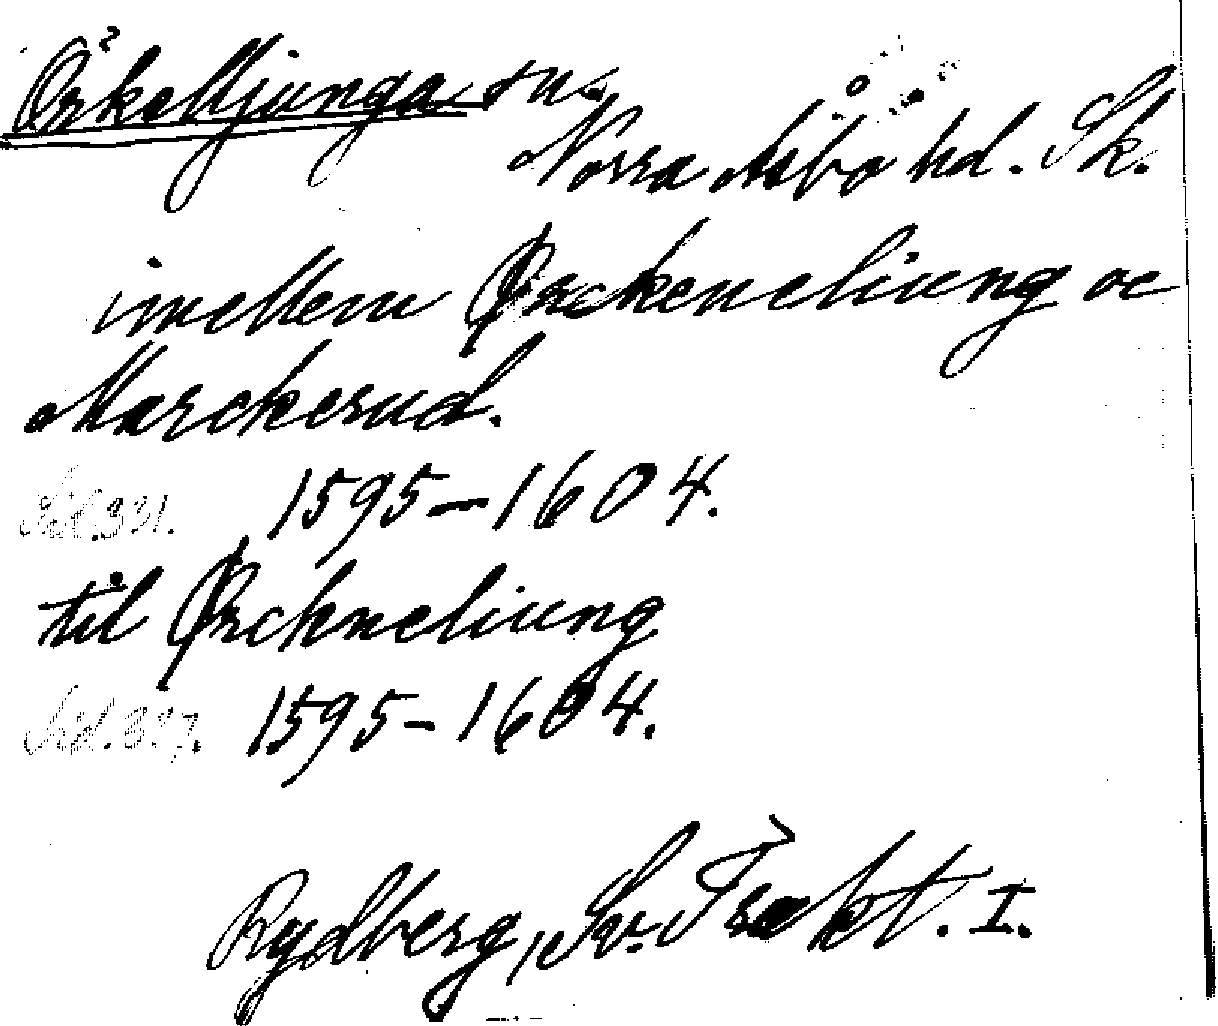 Örkelljunga sn.
Norra Åsbo hd. Sk.
imellem Ørckeneliung oc
Marckerud.
Sid. 331. 1595–1604.
til Ørckneliung
Sid. 337. 1595–1604.
Rydberg, Sv. Trakt. I.